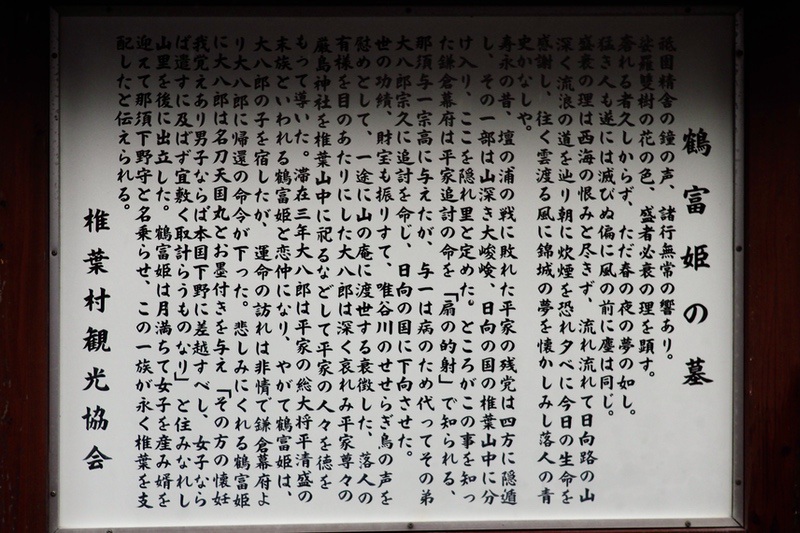 鶴富姫の墓
祗園精舎の鐘の声、諸行無常の響あり。
娑羅雙樹の花の色、盛者必衰の理を顕す。
奢れる者久しからず、ただ春の夜の夢の如し。
猛き人も遂には滅びぬ偏に風の前に塵は同じ。
盛衰の理は西海の恨みと尽きず、流れ流れて日向路の山
深く流浪の道を辿り朝に炊煙を恐れ夕べに今日の生命を
感謝し、往く雲渡る風に錦城の夢を懐かしみし落人の青
史かなしや。
寿永の昔、壇の浦の戦に敗れた平家の残党は四方に隠遁
し、その一部は山深き大峻嶮、日向の国の椎葉山中に分
け入り、ここを隠れ里と定めた。ところがこの事を知っ
た鎌倉幕府は平家追討の命を「扇の的射」で知られる、
那須与一宗高に与えたが、与一は病のため代ってその弟
大八郎宗久に追討を命じ、日向の国に下向させた。
世の功績、財宝も振りすて、唯谷川のせせらぎ鳥の声を
慰めとして、一途に山の庵に渡世する衰微した、落人の
有様を目のあたりにした大八郎は深く哀れみ平家尊々の
厳島神社を椎葉山中に祀るなどして平家の人々を徳を
もって導いた。滞在三年大八郎は平家の総大将平清盛の
末族といわれる鶴富姫と恋仲になり、やがて鶴富姫は、
大八郎の子を宿したが、運命の訪れは非情で鎌倉幕府よ
り大八郎に帰還の命令が下った。悲しみにくれる鶴富姫
に大八郎は名刀天国丸とお墨付きを与え「その方の懐妊
我覚えあり男子ならば本国下野に差越すべし、女子なら
ば遣すに及ばず宜敷く取計らうものなり」と住みなれし
山里を後に出立した。鶴富姫は月満ちて女子を産み婿を
迎えて那須下野守と名乗らせ、この一族が永く椎葉を支
配したと伝えられる。
椎葉村観光協会